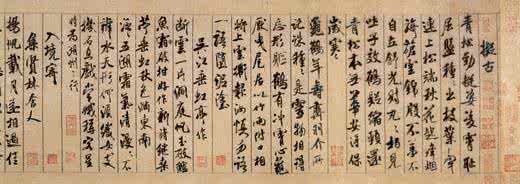 擬古
青松勁挺姿凌霄恥
屈盤種種出枝葉牽
連上松端秋花起絳煙
旖旎雲錦殷不羞不
自立舒光射丸丸柏見
吐子效鶴疑縮頸還
青松本無華安得保
歲寒
龜鶴年壽齊羽介所
託殊種種是靈物相得
忘形軀鶴有沖霄心龜
厭曳尾居以竹兩附口相
將上雲衢報汝慎勿語
一語墮泥塗
吳江垂虹亭作
斷雲一片洞庭帆玉破鱸
魚金破柑好作新詩繼桑
苧垂虹秋色滿東南
泛泛五湖霜氣清漫漫不
辨水天形何須織女支
機石且戲嫦娥稱客星
時為湖州之行
入境寄
集賢林舍人
揚帆載月遠相過佳